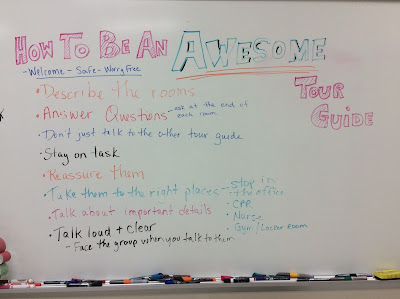 HOW TO BE AN AWESOME
TOUR
GUIDE
-Welcome - Safe - Worry Free
• Describe the rooms
• Answer Questions - ask at the end of
each room
• Don't just talk to the other tour guide
• Stay on task
• Reassure them
• Take them to the right places - stop in
the office
• CRR
• Nurse
• Gym/Locker room
• Talk about important details
• Talk loud + clear
- Face the group when you talk to them